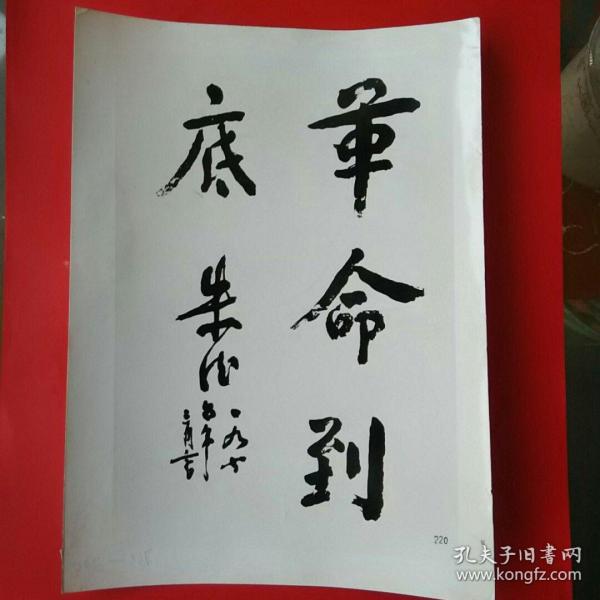 革命到
底 朱德
一九七
五年
三月六日
220
孔夫子旧书网
www.kongfz.com